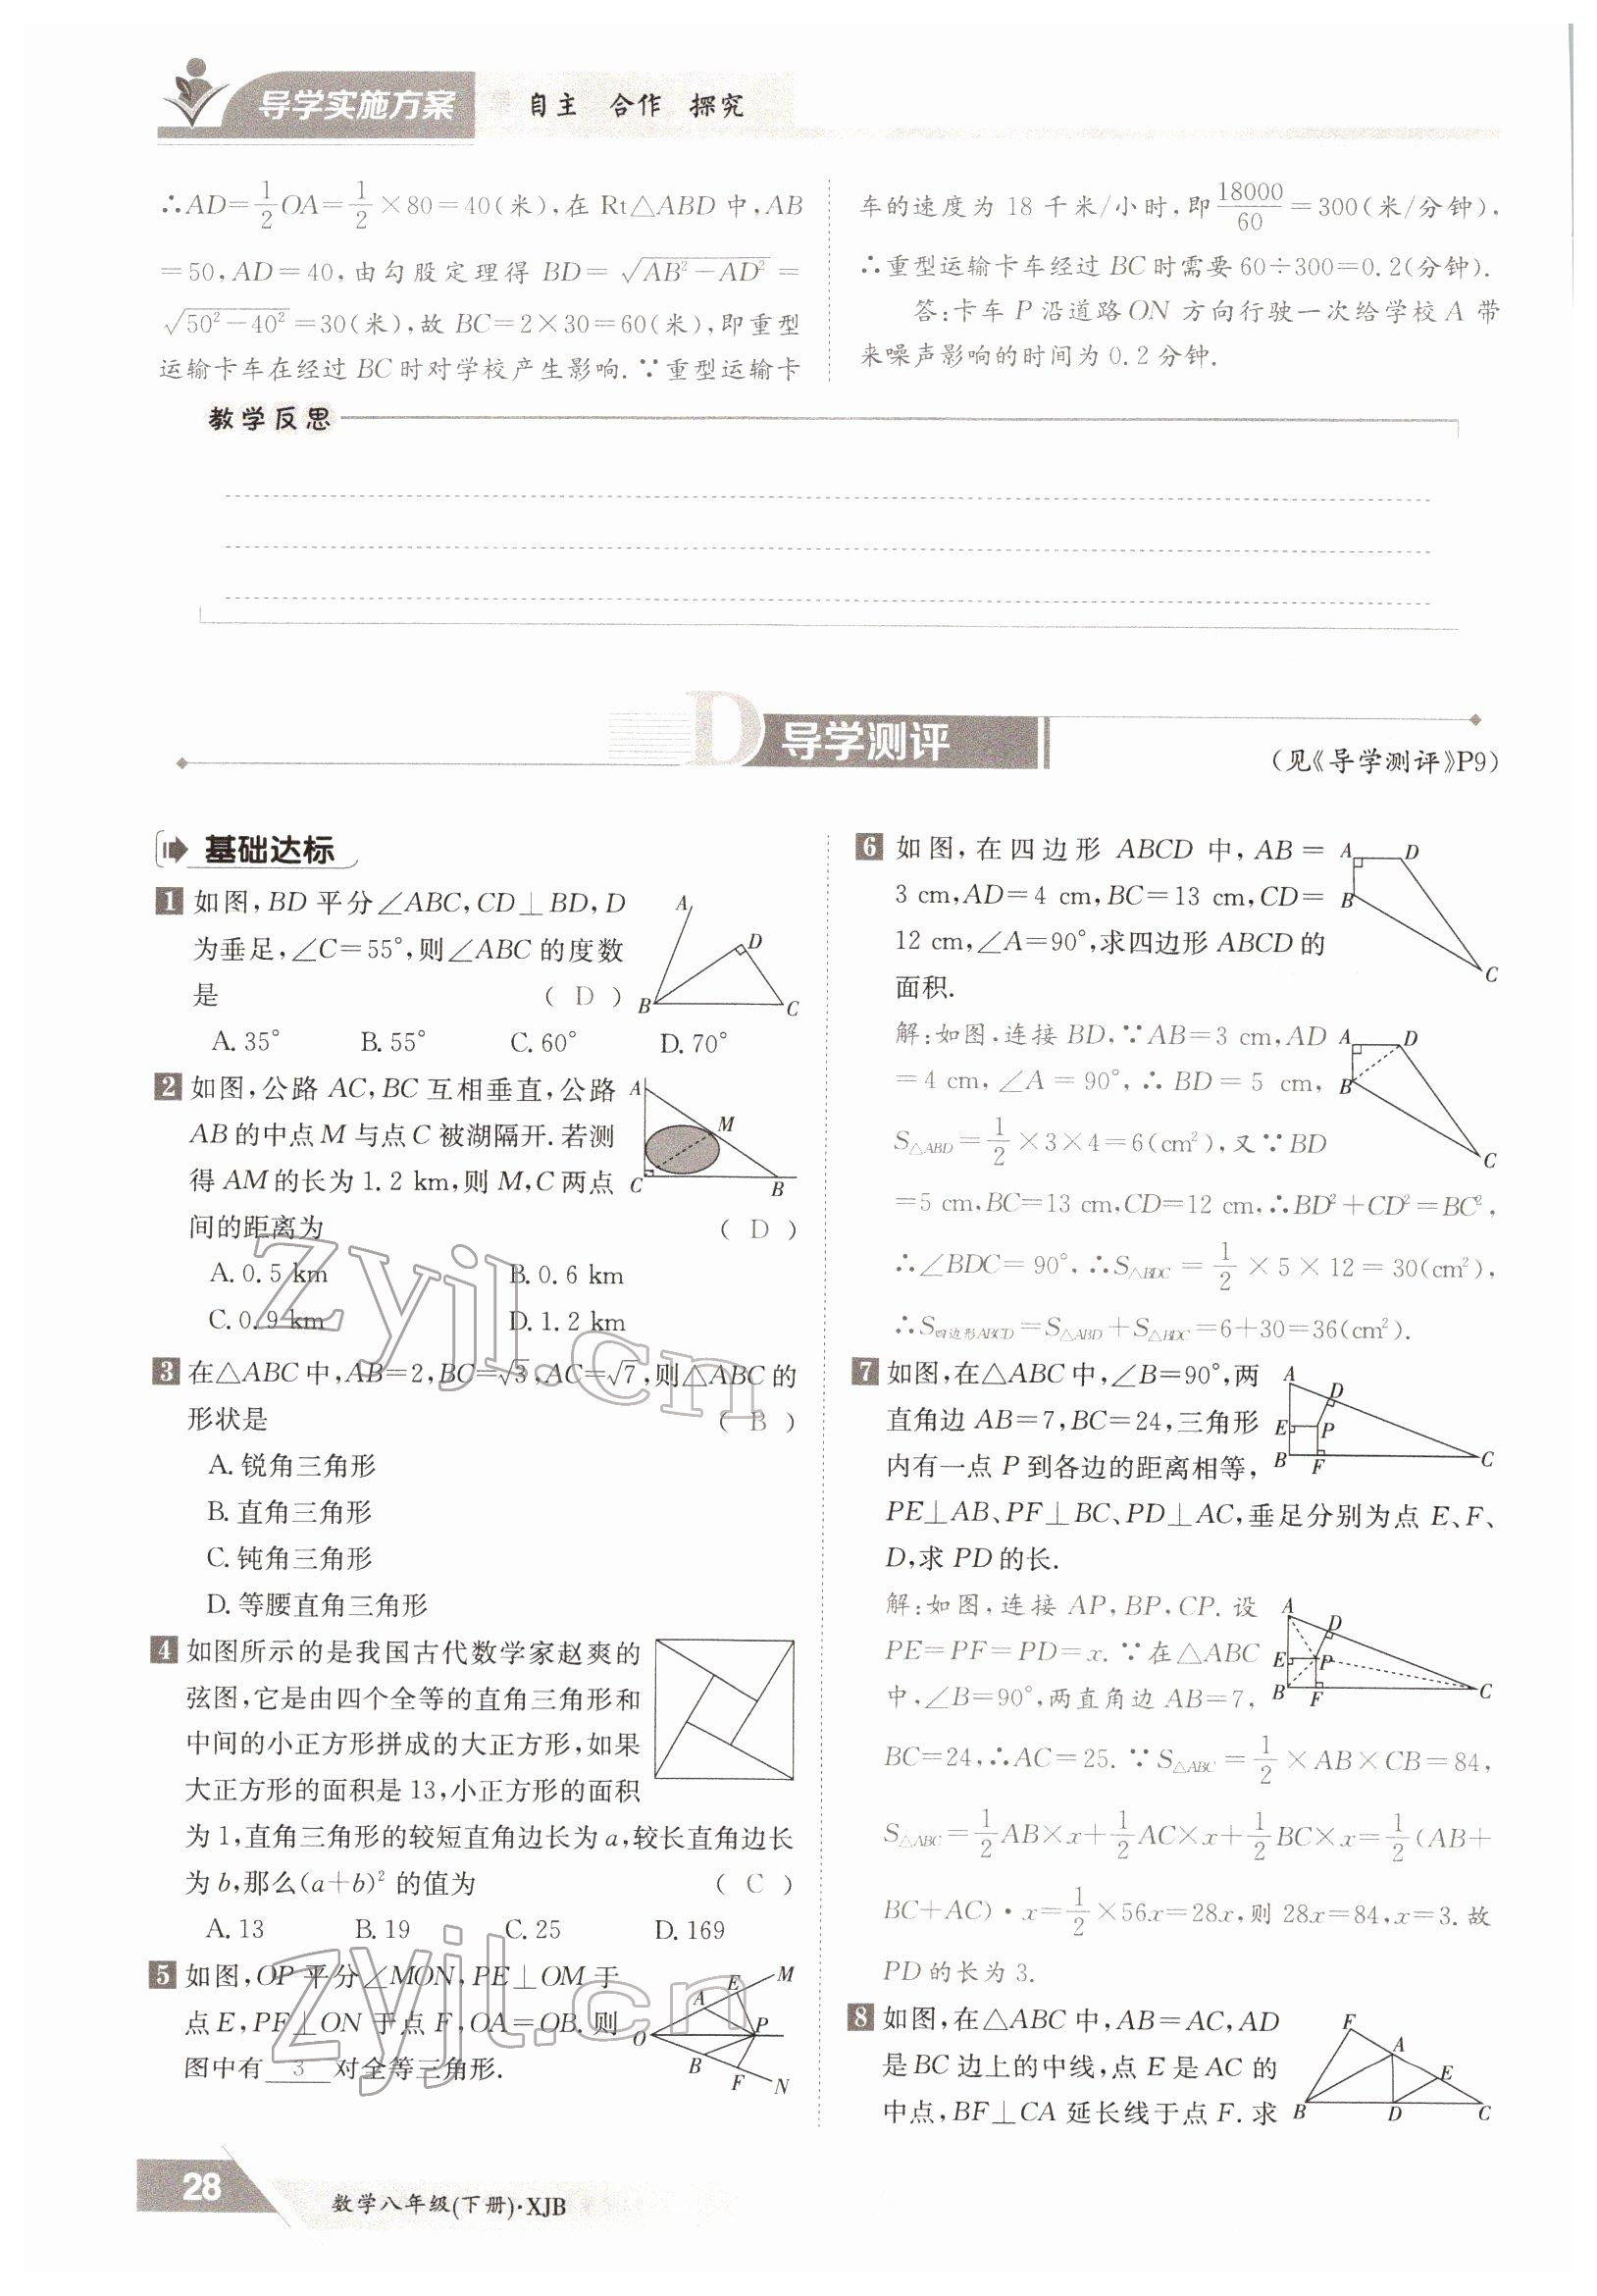 导学实施方案
自主 合作 探究
∴AD=1/2 OA=1/2×80=40(米),在 Rt△ABD 中,AB
=50,AD=40,由勾股定理得 BD=√(AB²-AD²)=
√(50²-40²)=30(米),故 BC=2×30=60(米),即重型
运输卡车在经过 BC 时对学校产生影响.∵重型运输卡
车的速度为 18 千米/小时,即 18000/60=300(米/分钟),
∴重型运输卡车经过 BC 时需要 60÷300=0.2(分钟).
答:卡车 P 沿道路 ON 方向行驶一次给学校 A 带
来噪声影响的时间为 0.2 分钟.
教学反思
D 导学测评
(见《导学测评》P9)
基础达标
1 如图,BD 平分∠ABC,CD⊥BD,D
为垂足,∠C=55°,则∠ABC 的度数
是 ( D )
A D B C
A. 35° B. 55° C. 60° D. 70°
2 如图,公路 AC,BC 互相垂直,公路
AB 的中点 M 与点 C 被湖隔开.若测
得 AM 的长为 1.2 km,则 M,C 两点
间的距离为 ( D )
A M C B
A. 0.5 km B. 0.6 km
C. 0.9 km D. 1.2 km
3 在△ABC 中,AB=2,BC=√3,AC=√7,则△ABC 的
形状是 ( B )
A. 锐角三角形
B. 直角三角形
C. 钝角三角形
D. 等腰直角三角形
4 如图所示的是我国古代数学家赵爽的
弦图,它是由四个全等的直角三角形和
中间的小正方形拼成的大正方形,如果
大正方形的面积是 13,小正方形的面积
为 1,直角三角形的较短直角边长为 a,较长直角边长
为 b,那么(a+b)² 的值为 ( C )
A. 13 B. 19 C. 25 D. 169
5 如图,OP 平分∠MON,PE⊥OM 于
点 E,PF⊥ON 于点 F,OA=OB.则
图中有 3 对全等三角形.
M E A P O B F N
6 如图,在四边形 ABCD 中,AB=
3 cm,AD=4 cm,BC=13 cm,CD=
12 cm,∠A=90°,求四边形 ABCD 的
面积.
A D B C
解:如图,连接 BD,∵AB=3 cm,AD
=4 cm,∠A=90°,∴BD=5 cm,
S△ABD=1/2×3×4=6(cm²),又∵BD
A D B C
=5 cm,BC=13 cm,CD=12 cm,∴BD²+CD²=BC²,
∴∠BDC=90°,∴S△BDC=1/2×5×12=30(cm²),
∴S四边形ABCD=S△ABD+S△BDC=6+30=36(cm²).
7 如图,在△ABC 中,∠B=90°,两
直角边 AB=7,BC=24,三角形
内有一点 P 到各边的距离相等,
PE⊥AB、PF⊥BC、PD⊥AC,垂足分别为点 E、F、
D,求 PD 的长.
A D E P B F C
解:如图,连接 AP,BP,CP.设
PE=PF=PD=x.∵在△ABC
中,∠B=90°,两直角边 AB=7,
A D E P B F C
BC=24,∴AC=25.∵S△ABC=1/2×AB×CB=84,
S△ABC=1/2 AB×x+1/2 AC×x+1/2 BC×x=1/2(AB+
BC+AC)·x=1/2×56x=28x,则 28x=84,x=3.故
PD 的长为 3.
8 如图,在△ABC 中,AB=AC,AD
是 BC 边上的中线,点 E 是 AC 的
中点,BF⊥CA 延长线于点 F.求
F A E B D C
zyjl.cn
zyjl.cn
28
数学八年级(下册)·XJB